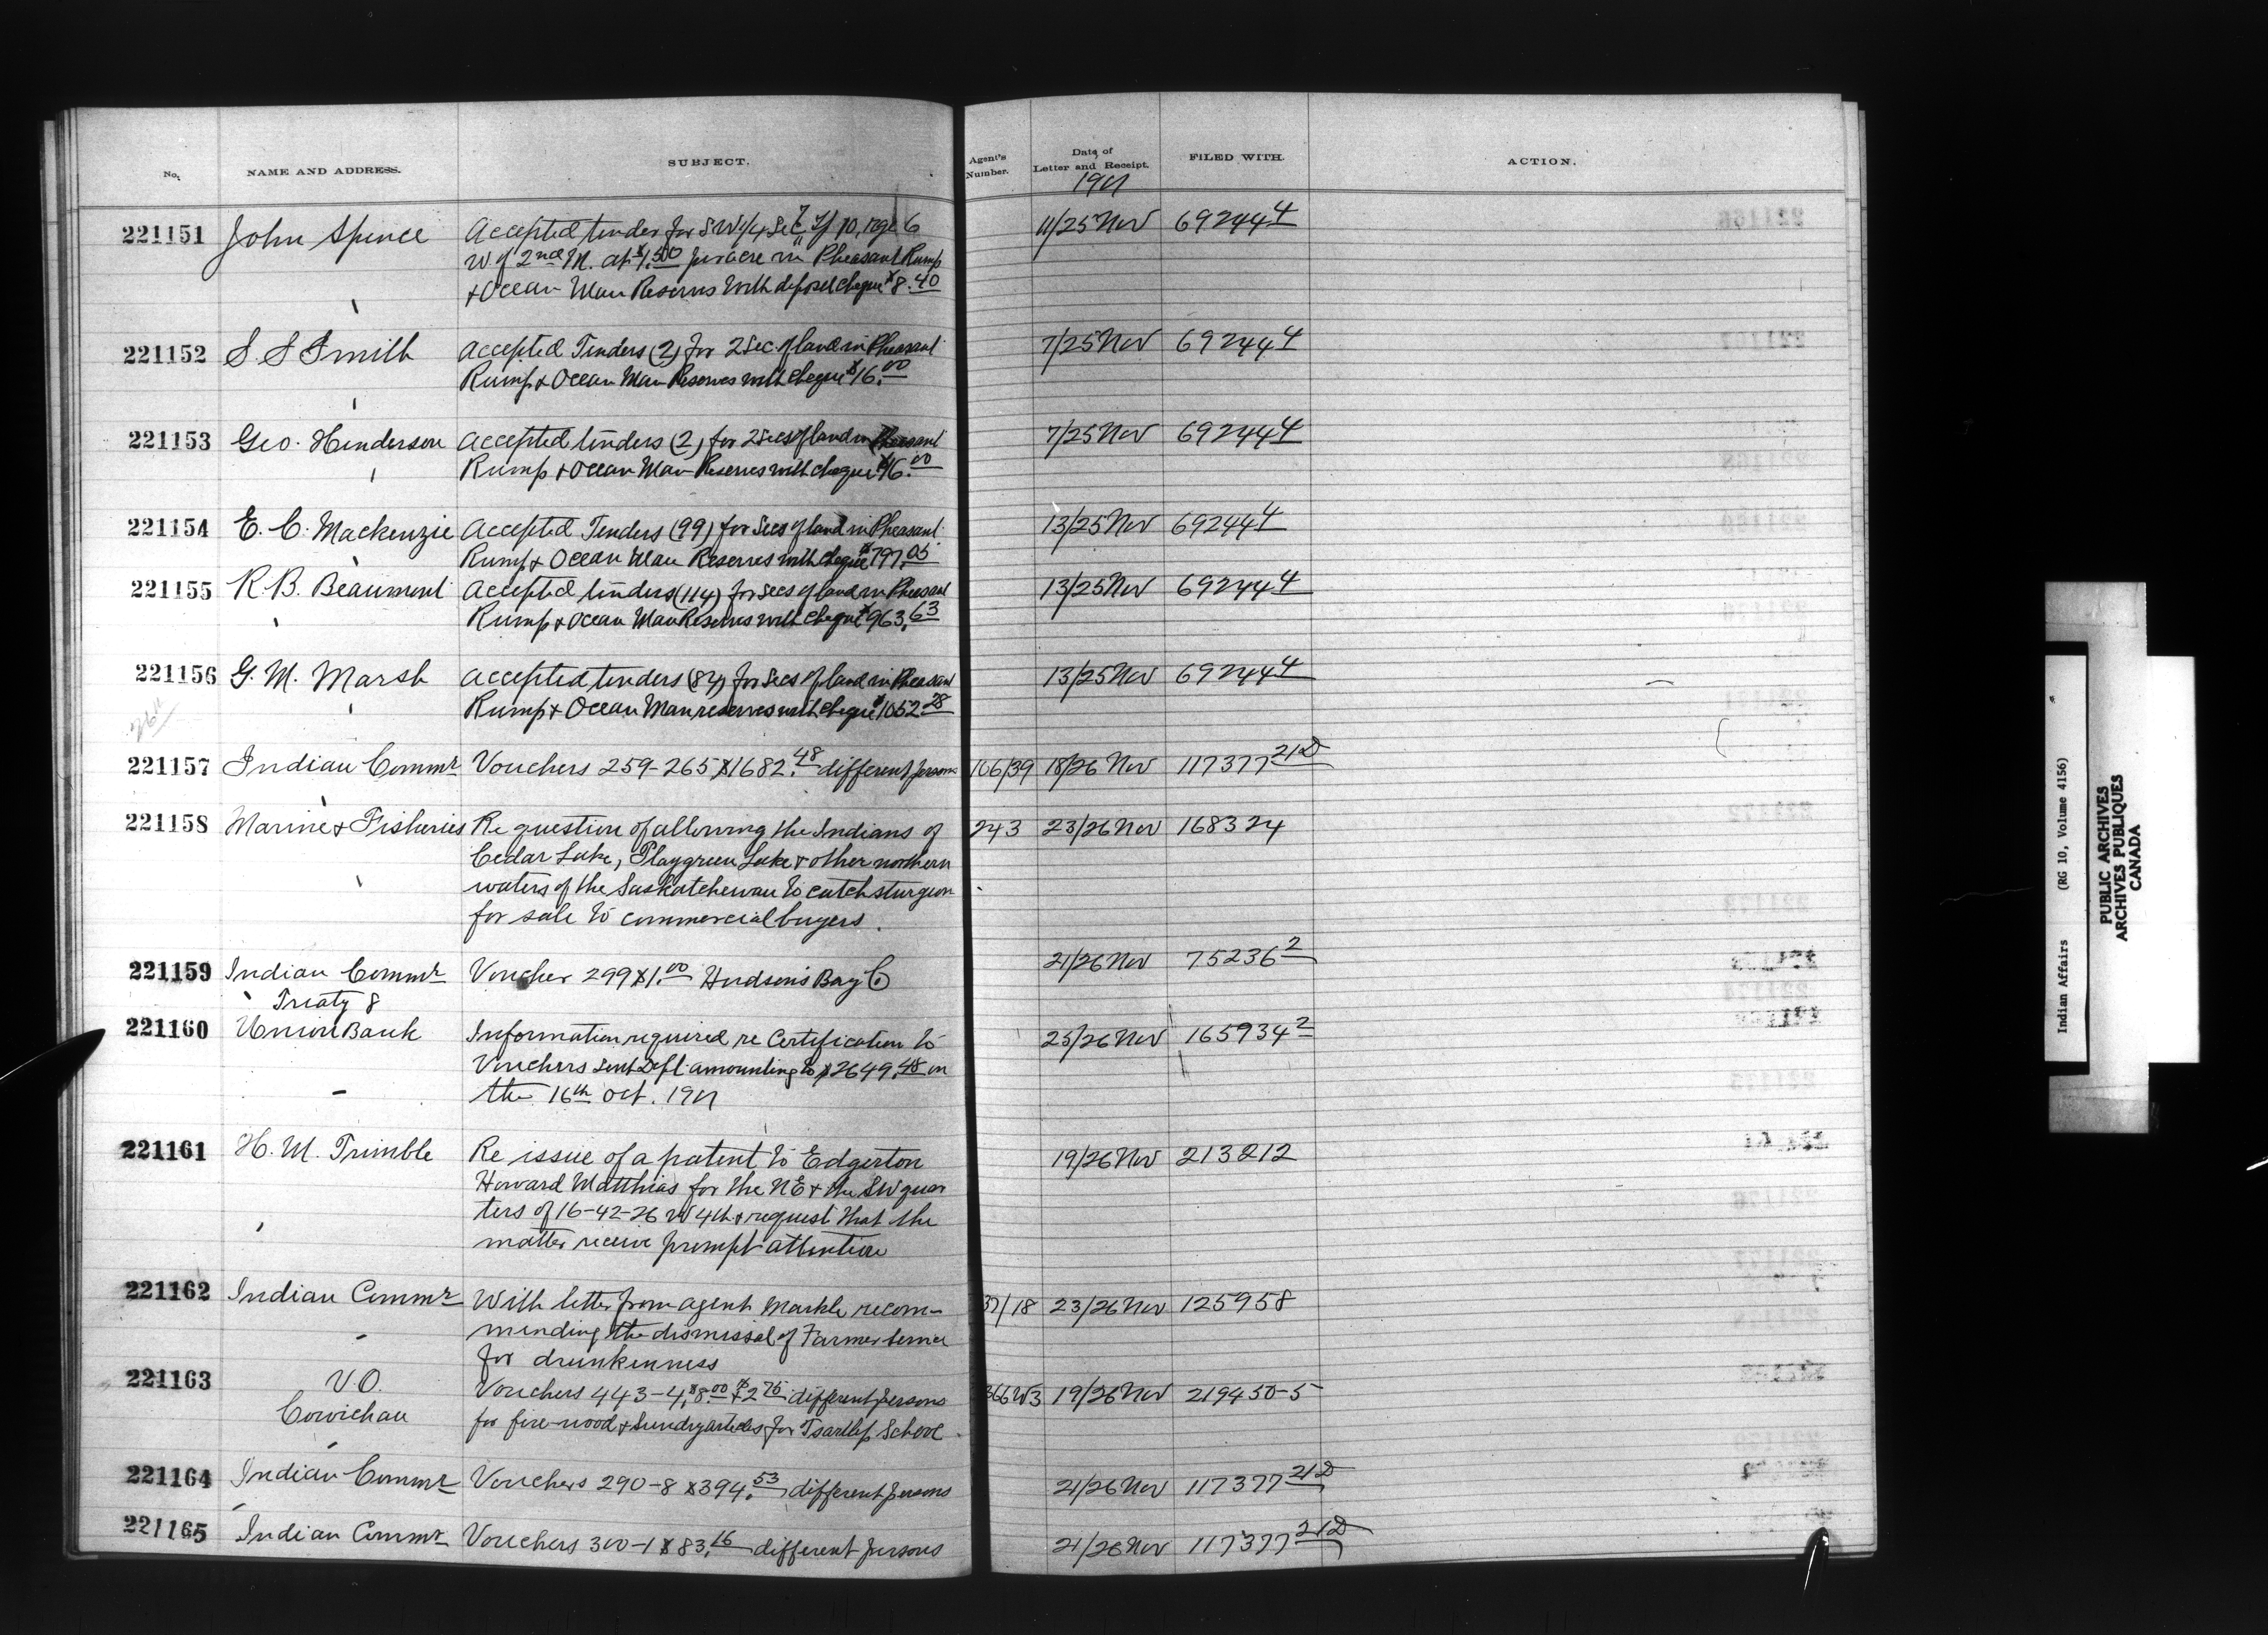 No. NAME AND ADDRESS. SUBJECT. Agent's Number. Date of Letter and Receipt. FILED WITH. ACTION.
1901
221151 John Spence Accepted tender for SW1/4 Sec 7 Tp 10, rge 6 11/25 Nov 69244 4
W of 2nd M. at $1.50 per acre in Pheasant Rump
& Ocean Man Reserves with deposit cheque $8.40
221152 S. S Smith Accepted Tenders (2) for 2 Sec. of land in Pheasant 7/25 Nov 69244 4
Rump & Ocean Man Reserves with cheque $16.00
221153 Geo. Henderson Accepted tenders (2) for 2 Secs of land in Pheasant 7/25 Nov 69244 4
Rump & Ocean Man Reserves with cheque $16.00
221154 E. C. Mackenzie Accepted Tenders (99) for Secs of land in Pheasant 13/25 Nov 69244 4
Rump & Ocean Man Reserves with cheque $797.05
221155 R. B. Beaumont Accepted tenders (114) for Secs of land in Pheasant 13/25 Nov 69244 4
Rump & Ocean Man Reserves with cheque $963.63
221156 G. M. Marsh Accepted tenders (87) for Secs of land in Pheasant 13/25 Nov 69244 4
Rump & Ocean Man reserves with cheque $1052.28
26"
221157 Indian Commr Vouchers 259-265 $1682.48 different persons 106/39 18/26 Nov 117377 21D
221158 Marine & Fisheries Re question of allowing the Indians of 243 23/26 Nov 168324
Cedar Lake, Playgreen Lake & other northern
waters of the Saskatchewan to catch sturgeon
for sale to commercial buyers.
221159 Indian Commr Voucher 299 $1.00 Hudson's Bay Co 21/26 Nov 75236 2
Treaty 8
221160 Union Bank Information required re Certification to 25/26 Nov 165934 2
Vouchers sent Dept. amounting to $2649.48 on
the 16th Oct. 1901
221161 H. M. Trimble Re issue of a patent to Edgerton 19/26 Nov 213212
Howard Matthias for the NE & the SW quar
ters of 16-42-26 W 4th & request that the
matter receive prompt attention
221162 Indian Commr With letter from agent Markle recom- 37/18 23/26 Nov 125958
mending the dismissal of Farmer
for drunkenness
221163 V.O. Vouchers 443-4, $8.00 & $2.75 different persons 366 W3 19/26 Nov 219450-5
Cowichan for fire-wood & Sundry articles for Tsartlip School
221164 Indian Commr Vouchers 290-8 $394.53 different persons 21/26 Nov 117377 21D
221165 Indian Commr Vouchers 300-1 $83.16 different persons 21/26 Nov 117377 21D
Indian Affairs (RG 10, Volume 4156)
PUBLIC ARCHIVES
ARCHIVES PUBLIQUES
CANADA